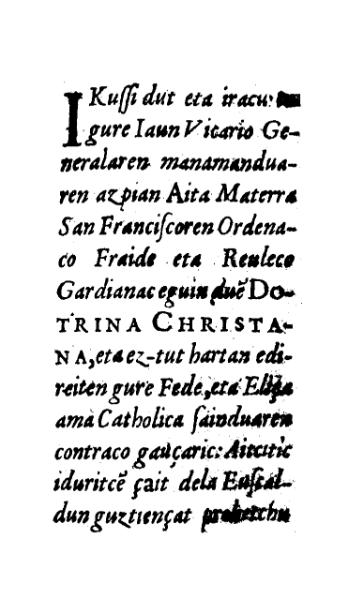 IKuſſi dut eta iracurri
gure Iaun Vicario Ge-
neralaren manamandua-
ren azpian Aita Materra
San Franciſcoren Ordena-
co Fraide eta Reuleco
Gardianac eguin duẽ DO-
TRINA CHRISTA-
NA, eta ez-tut hartan edi-
reiten gure Fede, eta Eliça
ama Catholica ſainduaren
contraco gauçaric: Aitcitic
iduritcẽ çait dela Euſcal-
dun guztiençat